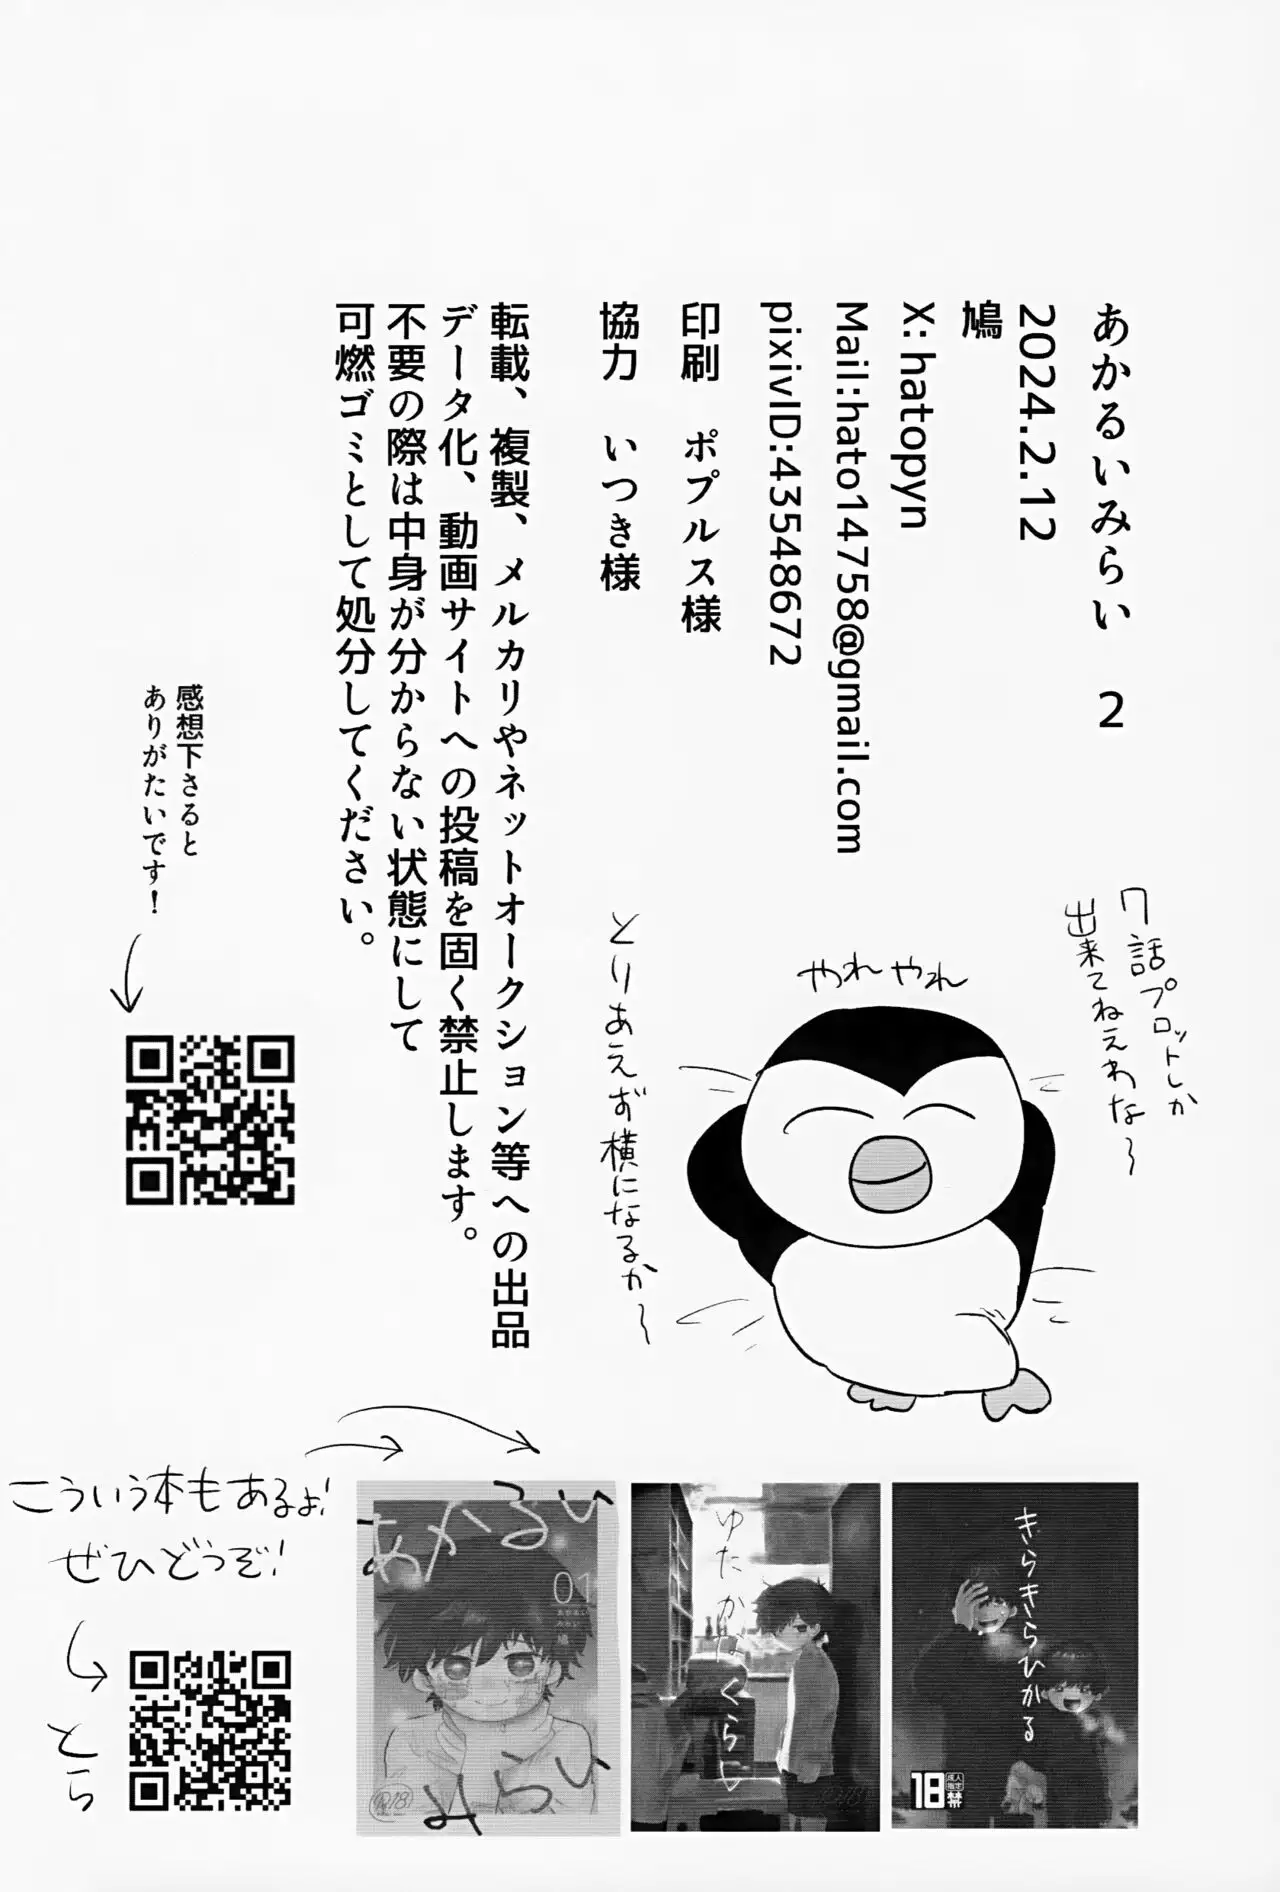 あかるいみらい　2
2024.2.12
鳩
X: hatopyn
Mail:hato14758@gmail.com
pixivID:43548672
印刷　ポプルス様
協力　いつき様
転載、複製、メルカリやネットオークション等への出品
データ化、動画サイトへの投稿を固く禁止します。
不要の際は中身が分からない状態にして
可燃ゴミとして処分してください。
感想下さると
ありがたいです！
7話プロットしか
出来てねえわな〜
やれやれ
とりあえず横になるか〜
こういう本もあるよ!
ぜひどうぞ!
とら
あかるい
みらい
01
R18
ゆたかなくらし
きらきらひかる
18
成人
指定
禁